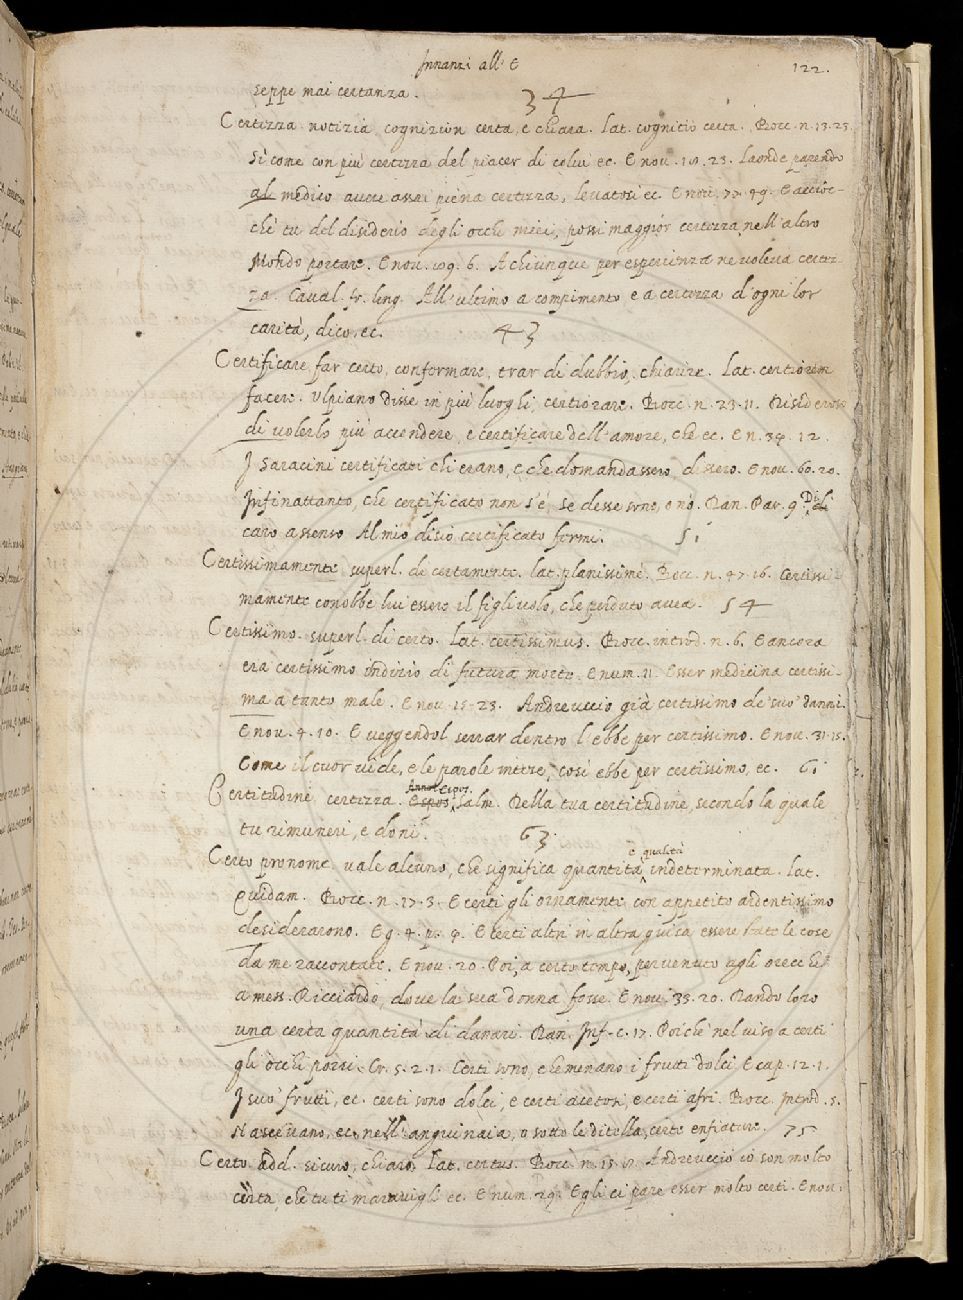 Innanzi all' E 122.
seppe mai certanza. 34
Certezza. notizia, cognizion certa, e chiara. Lat. cognitio certa. Bocc. n. 13. 23.
Sì come con più certezza del piacer di colui ec. E nov. 18. 23. Laonde parendo
al medico avere assai piena certezza, levatosi ec. E nov. 77. 49. E accioc-
chè tu del disiderio degli occhi miei, possi maggior certezza nell' altro
Mondo portare. E nov. 109. 6. A chiunque per esperienza ne voleva certez-
za. Caval. fr. ling. All' ultimo a compimento e a certezza d' ogni lor
carità, dico, ec. 43
Certificare, far certo, confermare, trar di dubbio, chiarire. Lat. certiorem
facere. Ulpiano disse in più luoghi, certiorare. Bocc. n. 23. 11. Disideroso
di volerlo più accendere, e certificare dell' amore, che ec. E n. 34. 12.
I Saracini certificati chi erano, e che domandassero dissero. E nov. 60. 20.
Infinattanto, che certificato non s' è, se desse sono, o nò. Dan. Par. 9. Di
caro assenso Al mio disio certificato fermi. 51
Certissimamente superl. di certamente. lat. planissimè. Bocc. n. 47. 16. Certissi-
mamente conobbe lui essere il figlivolo, che perduto avea. 54
Certissimo. superl. di certo. Lat. certissimus. Bocc. introd. n. 6. E ancora
era certissimo indizio di futura morte. E num. 11. Esser medicina certissi-
ma a tanto male. E nov. 15. 23. Andreuccio già certissimo de' suo' danni.
E nov. 4. 10. E veggendol serrar dentro l' ebbe per certissimo. E nov. 31. 15.
Come il cuor vide, e le parole intese, così ebbe per certissimo, ec. 61
Certitudine, certezza. Annot. espos. Salm. Nella tua certitudine, secondo la quale
tu rimuneri, e doni. 63
Certo pronome. vale alcuno, che significa quantità e qualità indeterminata. Lat.
Quidam. Bocc. n. 17. 3. E certi gli ornamenti con appetito ardentissimo
desiderarono. E g. 4. p. 9. E certi altri in altra guisa essere state le cose
da me raccontate. E nov. 20. Poi, a certo tempo, pervenuto agli orecchi
a mess. Ricciardo, dove la sua donna fosse. E nov. 33. 20. Dando loro
una certa quantità di danari. Dan. Inf. c. 17. Poichè nel viso a certi
gli occhi porsi. Cr. 5. 2. 1. Certi sono, che menano i frutti dolci, E cap. 12. 1.
I suo' frutti, ec. certi sono dolci, e certi acetosi, e certi afri. Bocc. Introd. 5.
Nascevano, ec. nell' anguinaia, o sotto le ditella, certe enfiature. 75
Certo. add. sicuro, chiaro. Lat. certus. Bocc. n. 15. Andreuccio io son molto
certa, che tu ti maravigli ec. E num. 29. Egli ci pare esser molto certi. E nov.